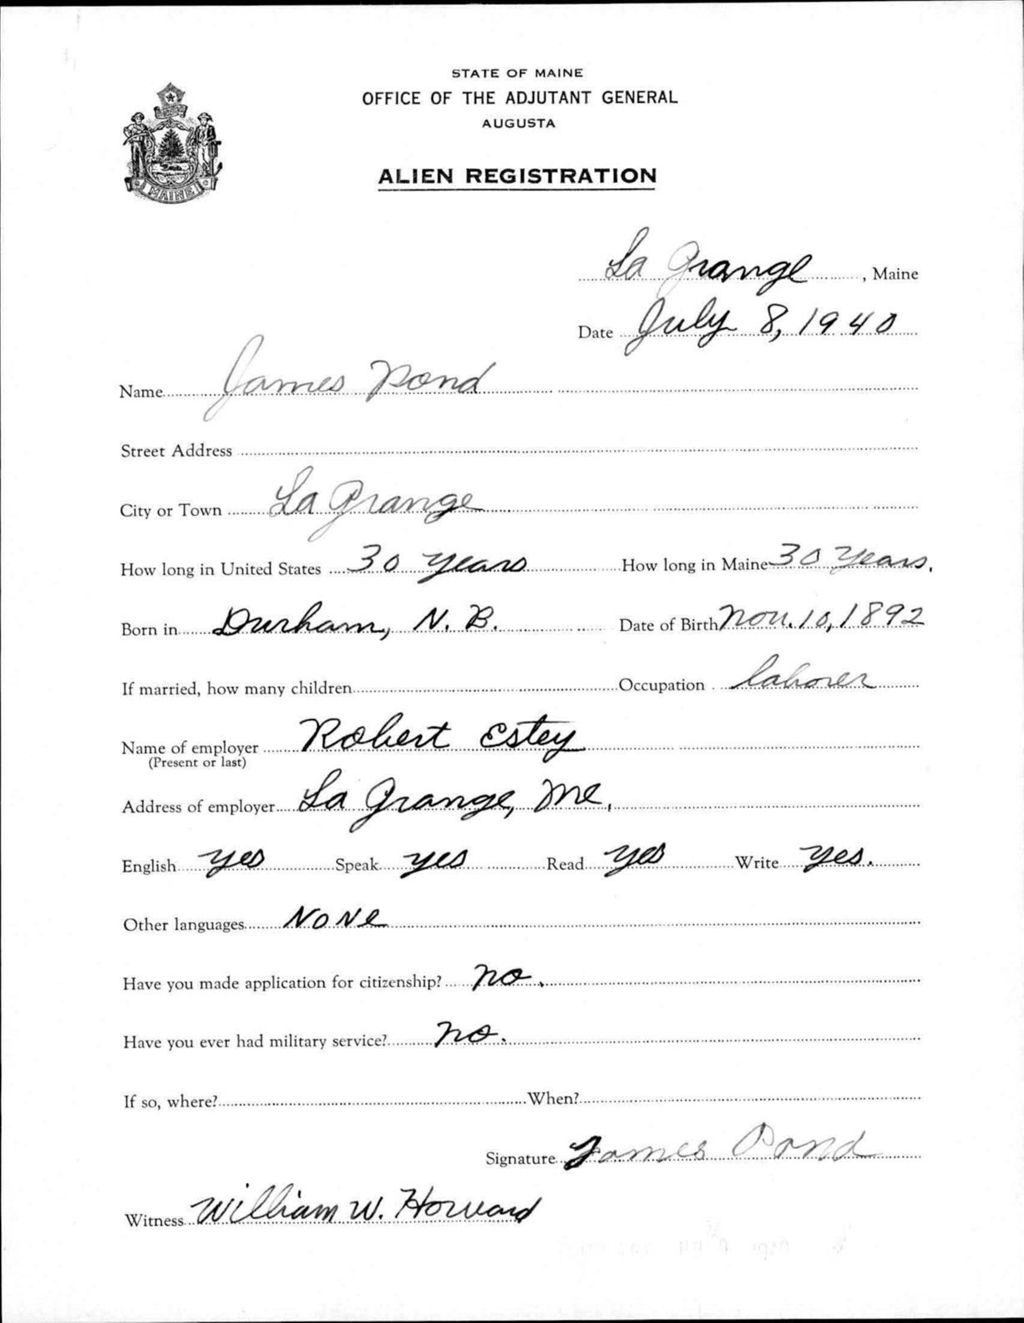 STATE OF MAINE
OFFICE OF THE ADJUTANT GENERAL
AUGUSTA
ALIEN REGISTRATION
MAINE
La Grange, Maine
Date July 8, 1940
Name James Pond
Street Address
City or Town La Grange
How long in United States 30 years How long in Maine 30 years.
Born in Durham, N. B. Date of Birth Nov. 10, 1892
If married, how many children Occupation laborer
Name of employer Robert Estey
(Present or last)
Address of employer La Grange, Me.
English yes Speak yes Read yes Write yes.
Other languages None
Have you made application for citizenship? no.
Have you ever had military service? no.
If so, where? When?
Signature James Pond
Witness William W. Howard